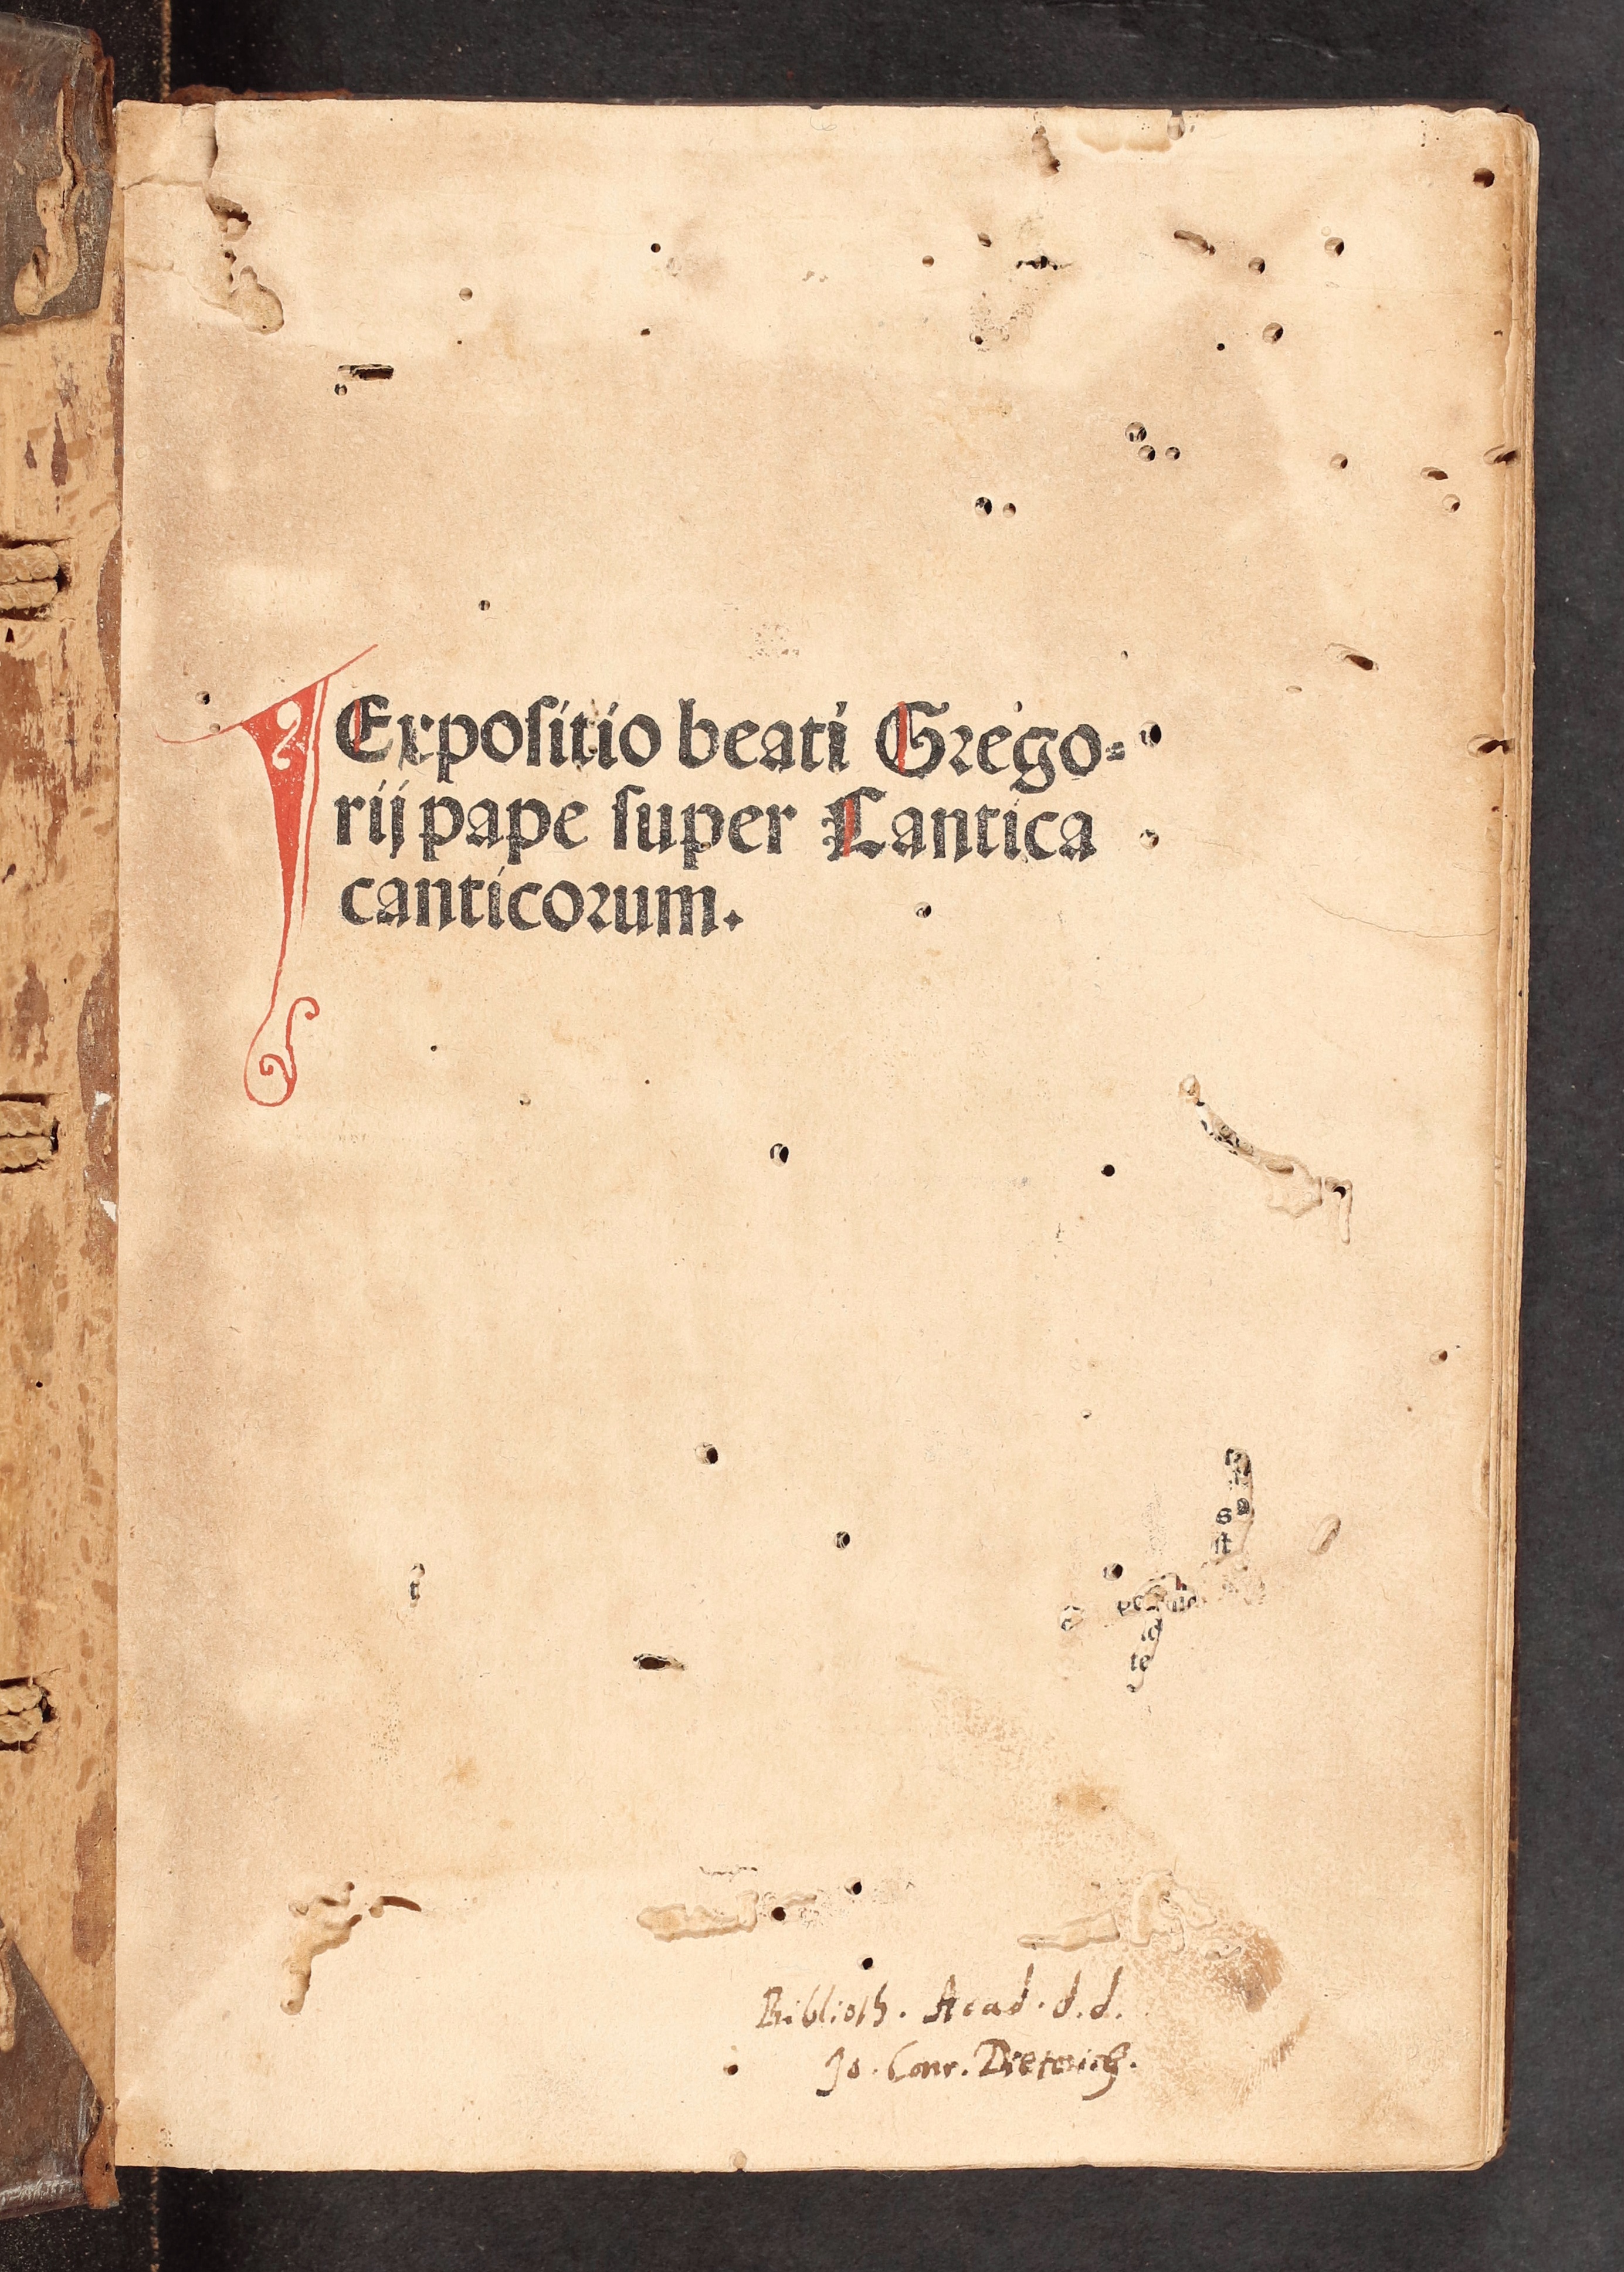 Expositio beati Grego-
rij pape super Cantica
canticorum.
Biblioth. Acad. d.d.
Jo. Conr. Dieterich.